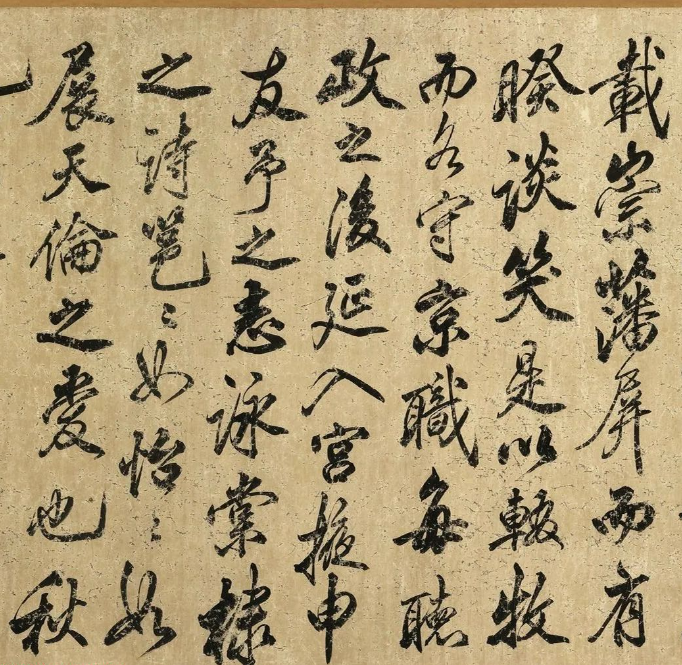 載崇藩屏而有
睽談笑是以輟牧
而各守京職每聽
政之後延入宮掖申
友予之志詠棠棣
之詩邕〻如怡〻如
展天倫之愛也秋